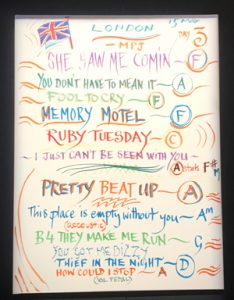 LONDON
15 Mar
MPJ
DAY 3
SHE SAW ME COMIN - F
YOU DON'T HAVE TO MEAN IT - A
FOOL TO CRY - F
MEMORY MOTEL - F
RUBY TUESDAY - C
~ I JUST CAN'T BE SEEN WITH YOU ~
A starts F# M
PRETTY BEAT UP - A
This place is empty without you - Am
(ACOUSTIC)
B4 THEY MAKE ME RUN - G
YOU GOT ME DIZZY
THIEF IN THE NIGHT - D
HOW COULD I STOP - A
(VOL PEDAL)